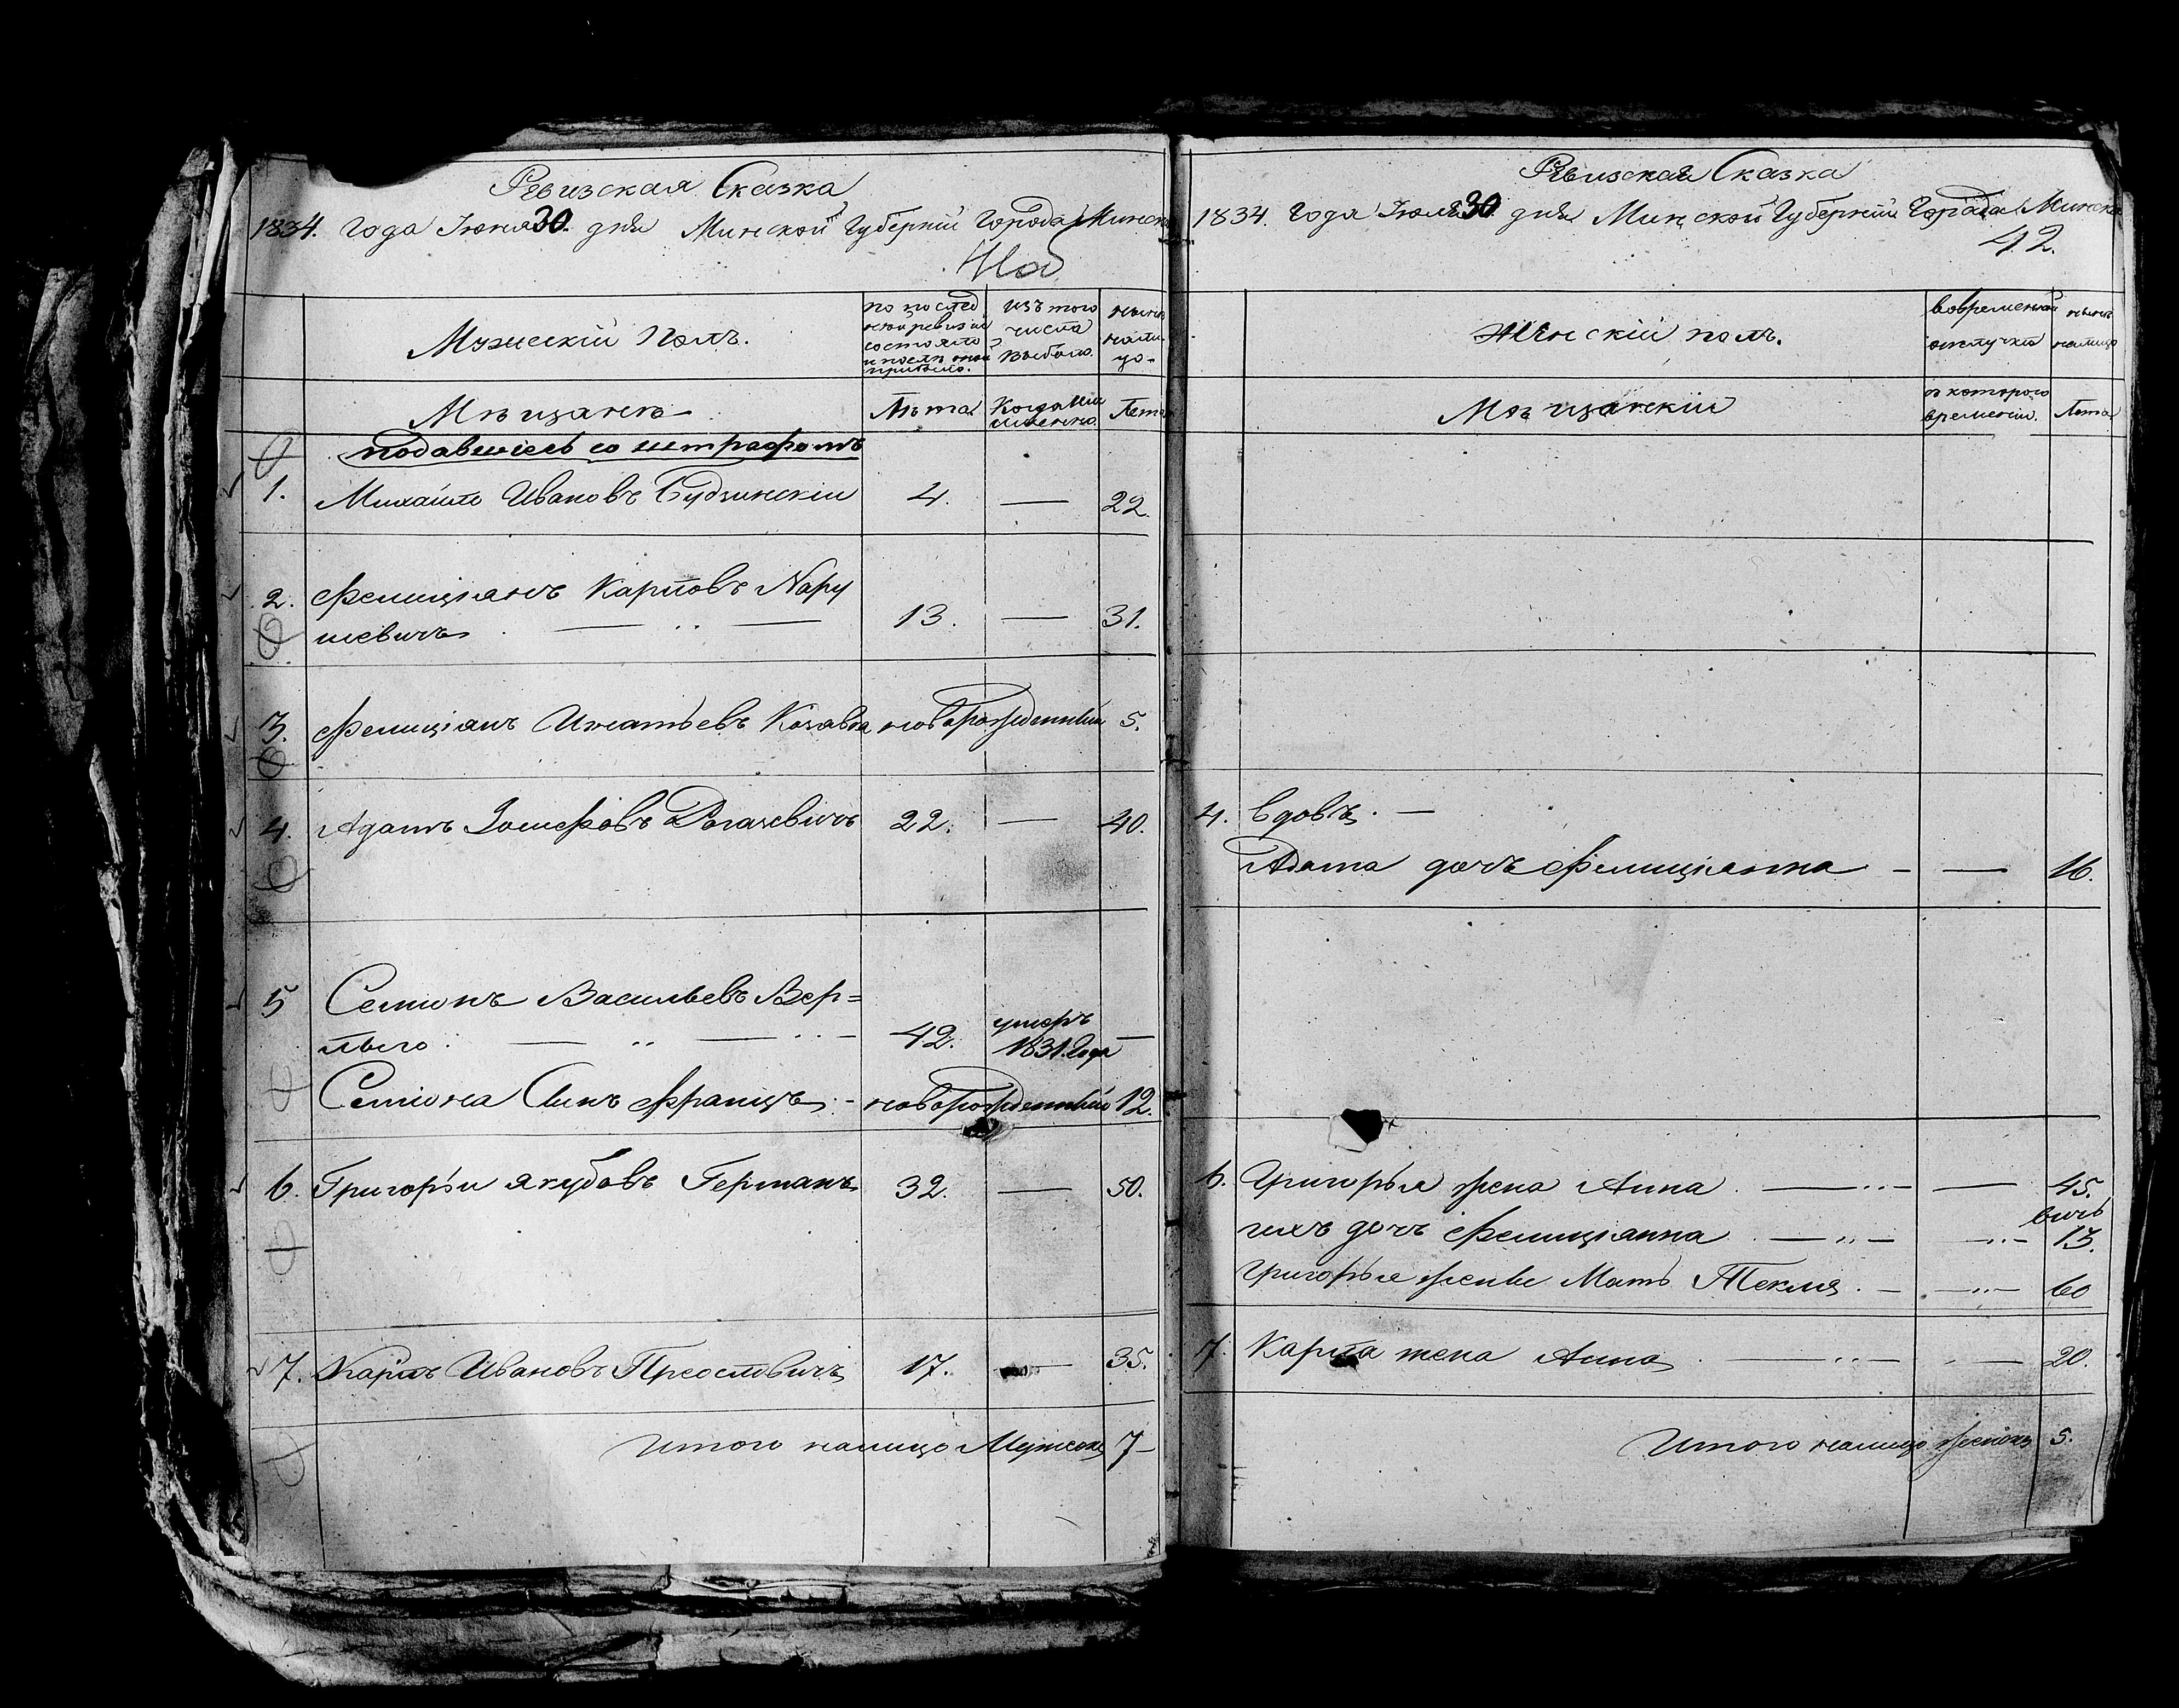 Ревизская Сказка
1834. года Июня 30. дня Минской Губерніи Города Минска
41 об
Мужескій Полъ.
по послед
ней ревизіи
состояло
и послѣ оной
прибыло.
изъ того
числа
выбыло.
нынѣ
нали
цо
Мѣщанѣ
Лѣта
Когда имянно
Лѣта
подавшіесь со штрафомъ
1. Михайло Ивановъ Будзинскій 4. — 22.
2. Фелиціянъ Карповъ Нару
шевичъ 13. — 31.
3. Фелиціанъ Игнатьевъ новорожденный 5.
4. Адамъ Іосифовъ 22. — 40.
5 Семіонъ Васильевъ Вер=
42. умеръ 1831. года —
Семіона Сынъ Францъ новорожденный 12.
6. Григорій Якубовъ Германъ 32. — 50.
7. Карпъ Ивановъ 17. — 35.
Итого налицо Мужеска 7
Ревизская Сказка
1834 года Июня 30 дня Минской Губерніи Города Минска
42.
Женскій полъ.
во временной
отлучки
нынѣ
налицо
Мѣщанскіи
съ которого
времени.
Лѣта
4. Вдовъ. —
Адама дочь Фелиціянна — — 16.
6. Григорья жена Анна — — 45.
ихъ дочь Фелиціанна — — 13.
Григорья жены Мать Текля — — 60
7. Карпа жена Анна — — 20.
Итого налицо женска 5.